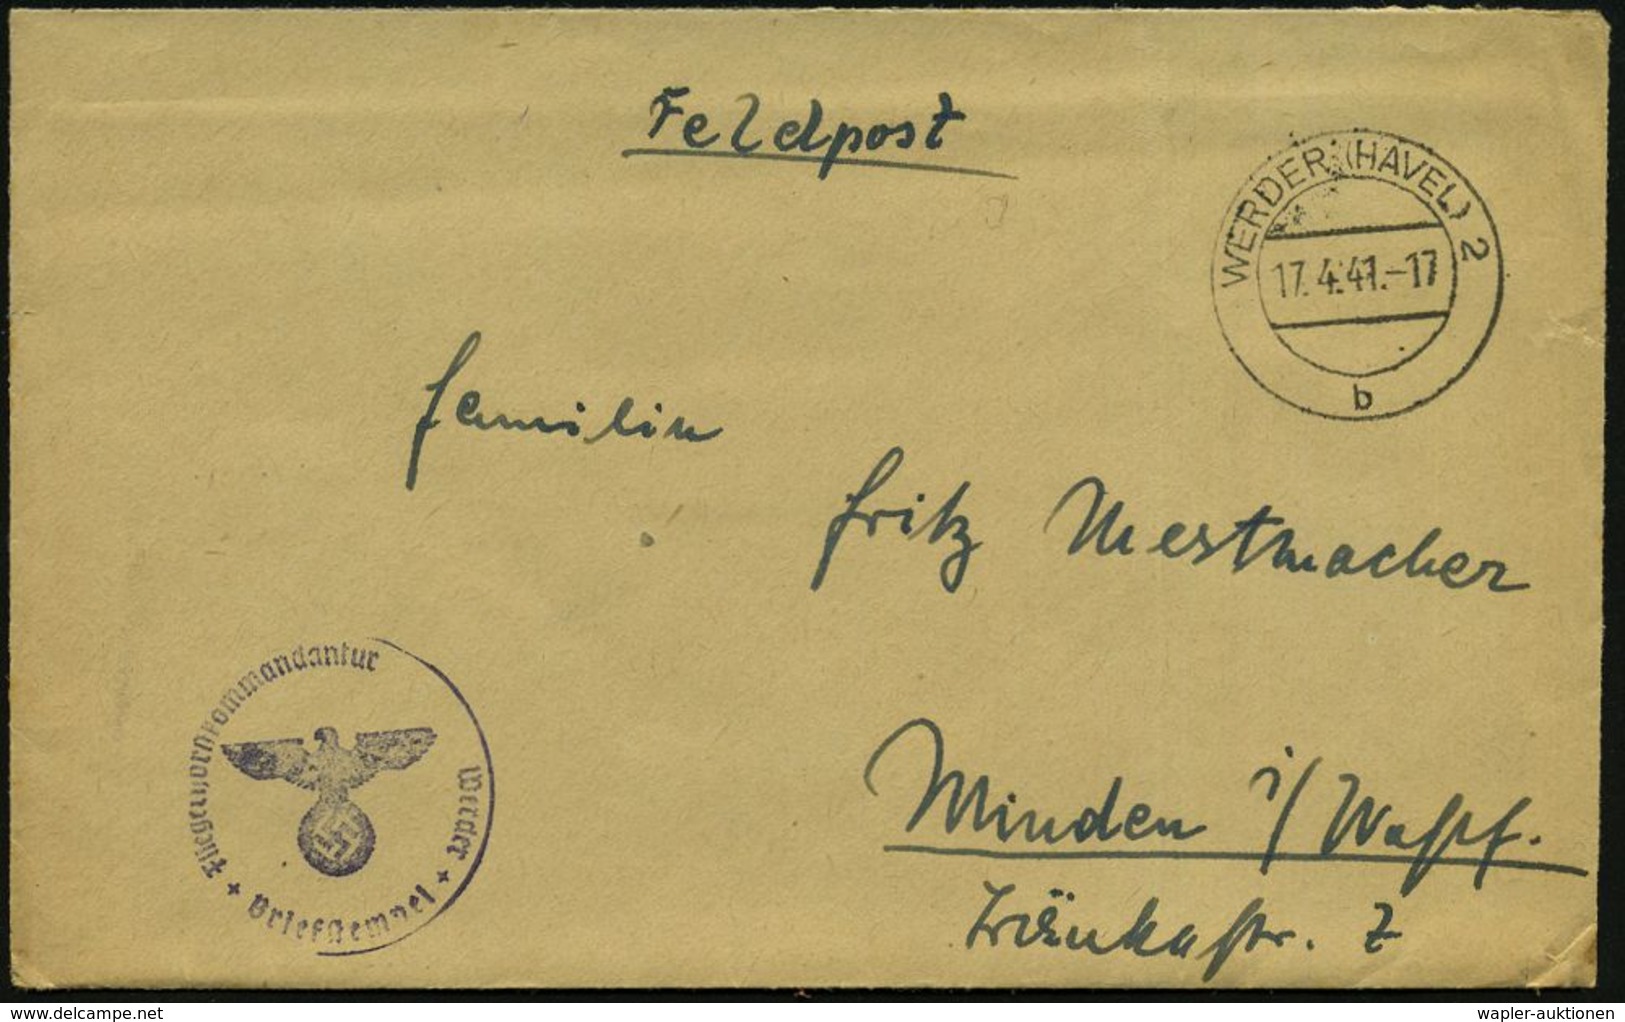 Feldpost
WERDER (HAVEL) 2
17.4.41.-17
b
Familie
Fritz Mestmacher
Minden i/Westf.
str. 7
Fliegerhorstkommandantur Werder
* Briefstempel *
www.delcampe.net
wapler-auktionen